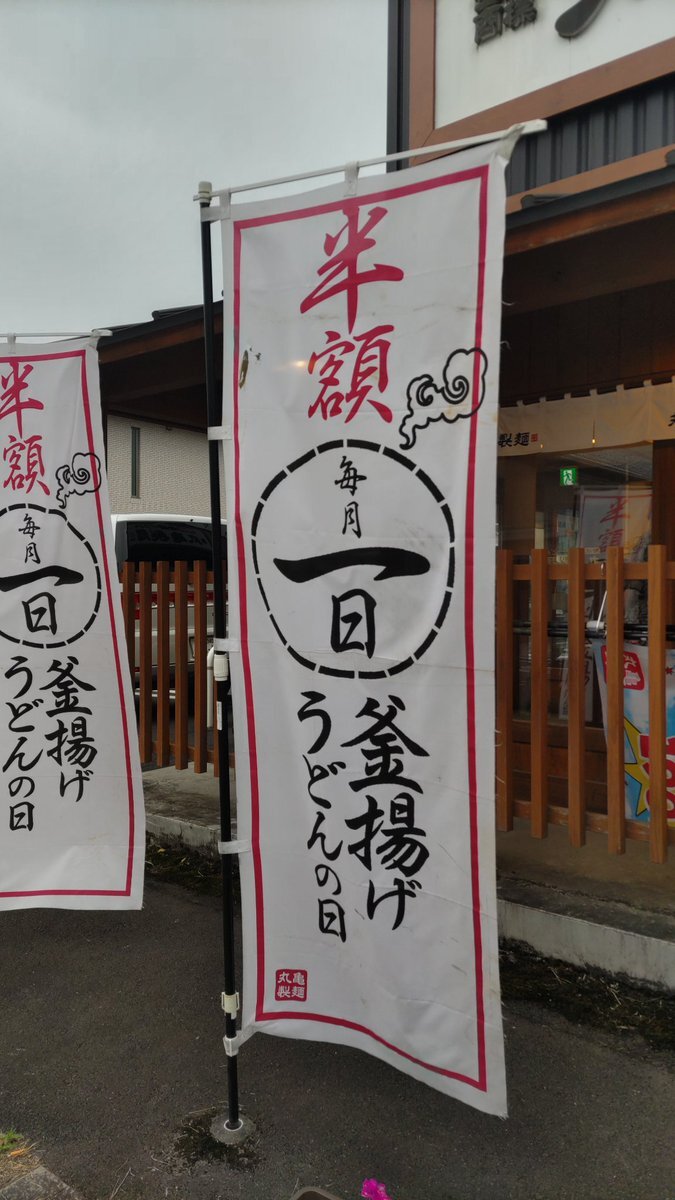 半額
毎月
一日
釜揚げ
うどんの日
丸亀
製麺
半額
毎月
一日
釜揚げ
うどんの日
製麺
半額